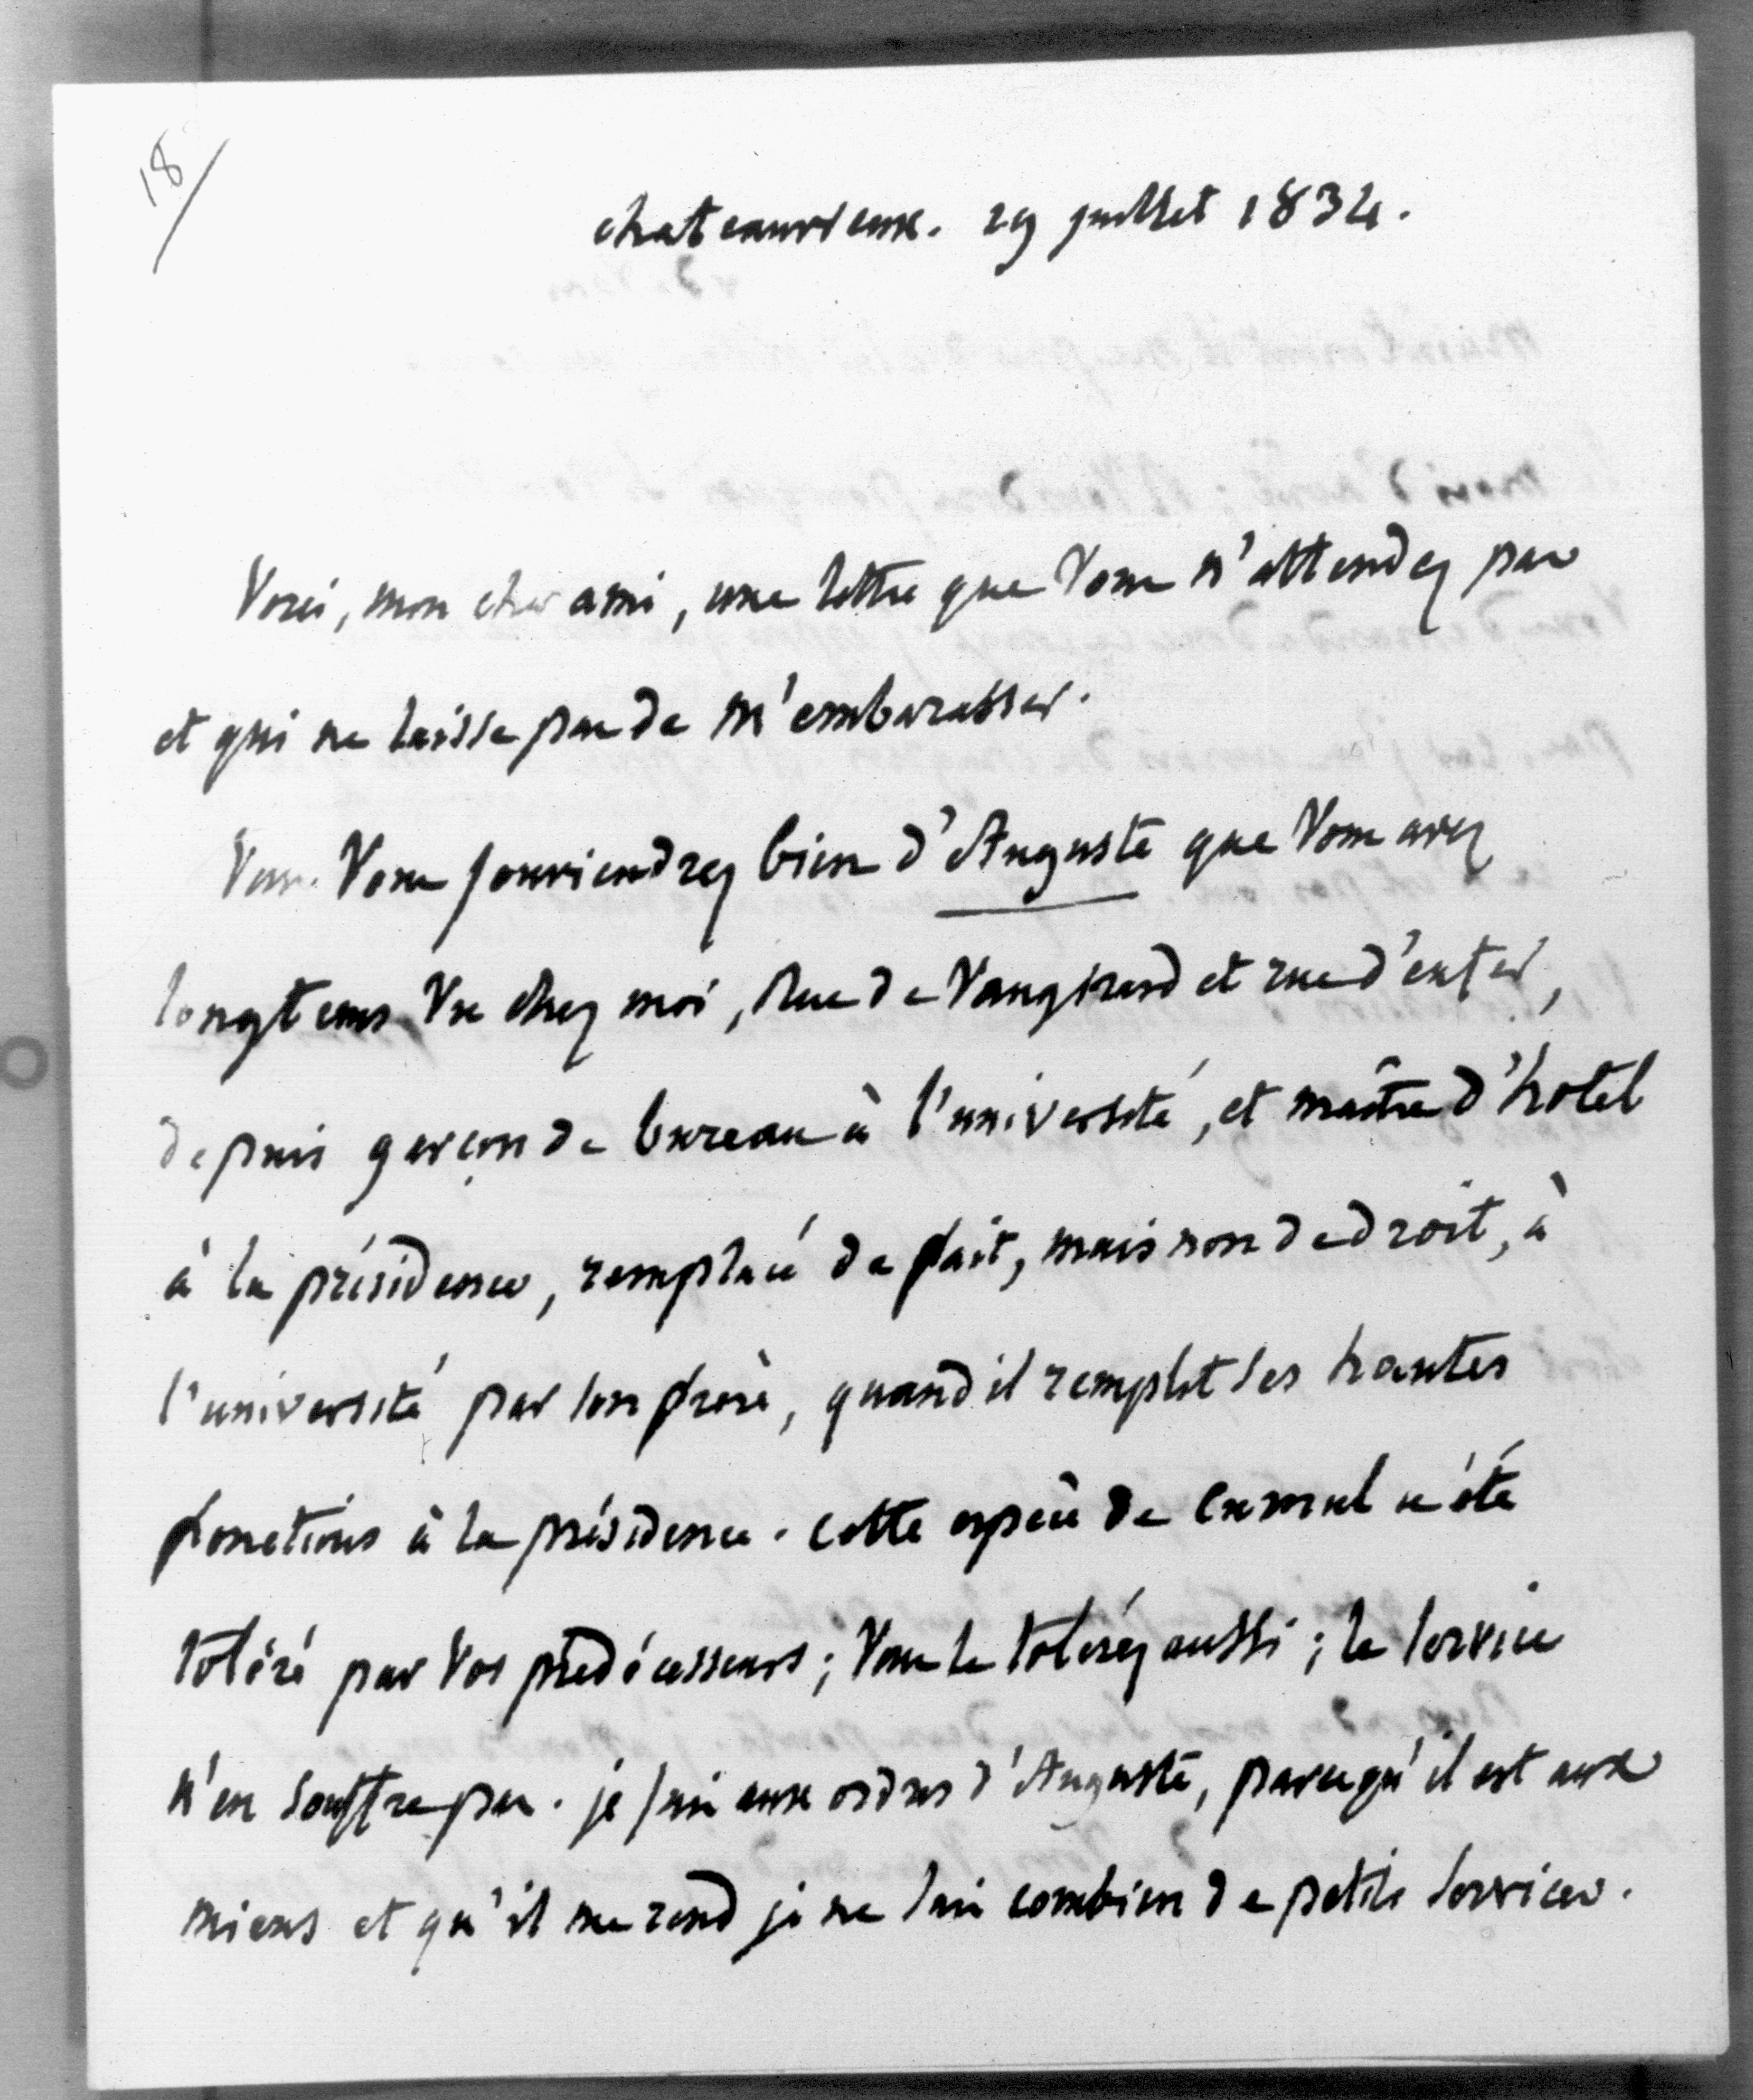 18/
chateauvieux. 29 juillet 1834.
Voici, mon cher ami, une lettre que Vous n'attendez pas
et qui ne laisse pas de m'embarasser.
Vous Vous souviendrez bien d'Auguste que Vous avez
longtems Vu chez moi, Rue de Vaugirard et rue d'enfer,
depuis garçon de bureau à l'université, et maître d'hotel
à la présidence, remplacé de fait, mais non de droit, à
l'université par son frère, quand il remplit ses hautes
fonctions à la présidence. cette espèce de cumul a été
toléré par Vos prédécesseurs; Vous le tolérez aussi; le service
n'en souffre pas. je suis aux ordres d'Auguste, parcequ'il est aux
miens et qu'il me rend je ne sais combien de petits services.